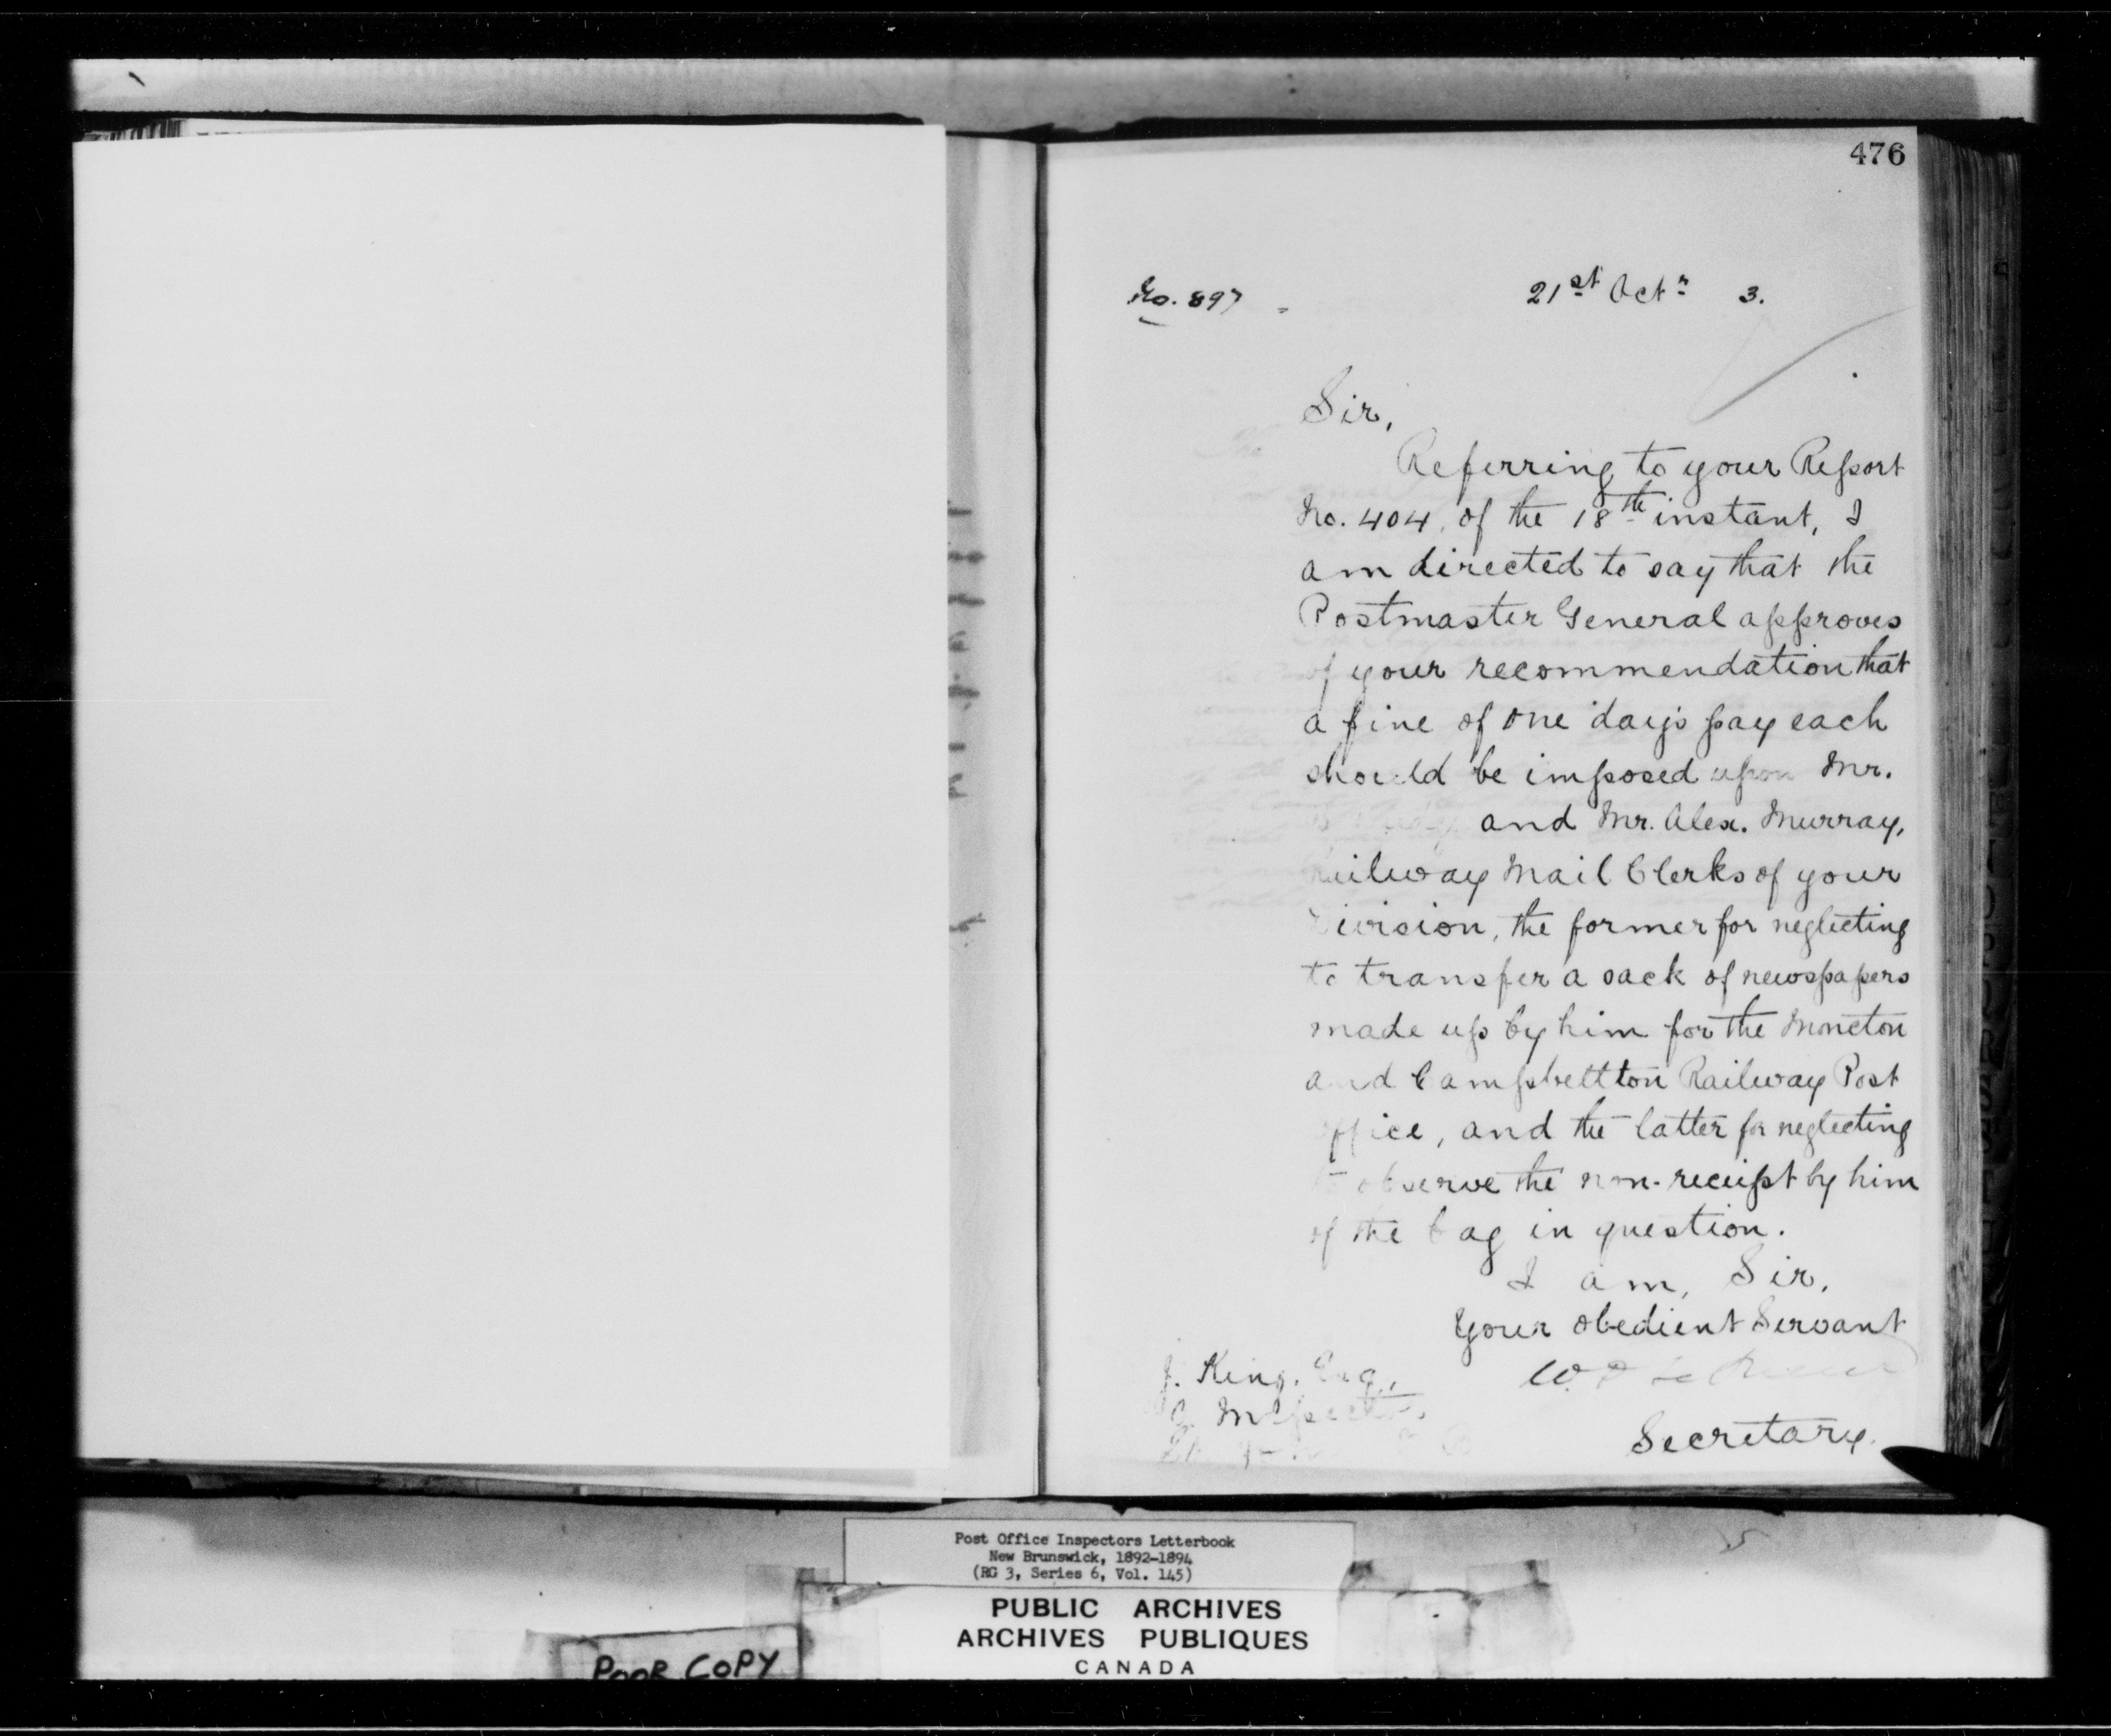 476
No. 897 21st Octr 3.
Sir,
Referring to your Report
No. 404, of the 18th instant, I
am directed to say that the
Postmaster General approves
of your recommendation that
a fine of one day's pay each
should be imposed upon Mr.
and Mr. Alex. Murray,
Railway Mail Clerks of your
Division, the former for neglecting
to transfer a sack of newspapers
made up by him for the Moncton
and Campbellton Railway Post
Office, and the latter for neglecting
to observe the non-receipt by him
of the bag in question.
I am, Sir,
Your obedient Servant
J. King, Esq,
Inspector,
Secretary.
Post Office Inspectors Letterbook
New Brunswick, 1892-1894
(RG 3, Series 6, Vol. 145)
PUBLIC ARCHIVES
ARCHIVES PUBLIQUES
CANADA
POOR COPY